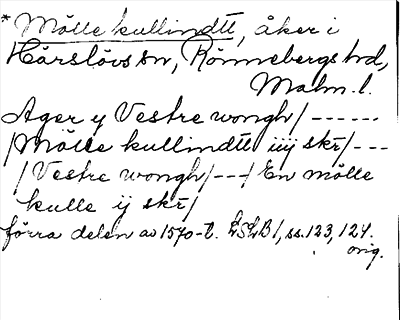 * Mölle kullindtt, åker i
Hårslövs sn, Rönnebergs hd,
Malm. l.
Ager y Vestre wongh/ ------
/Mölle kullindtt iiij skr/---
/Vestre wongh/---/ En mölle
kulle ij skr/
förra delen av 1570-t. LSLB 1, ss. 123, 124.
orig.